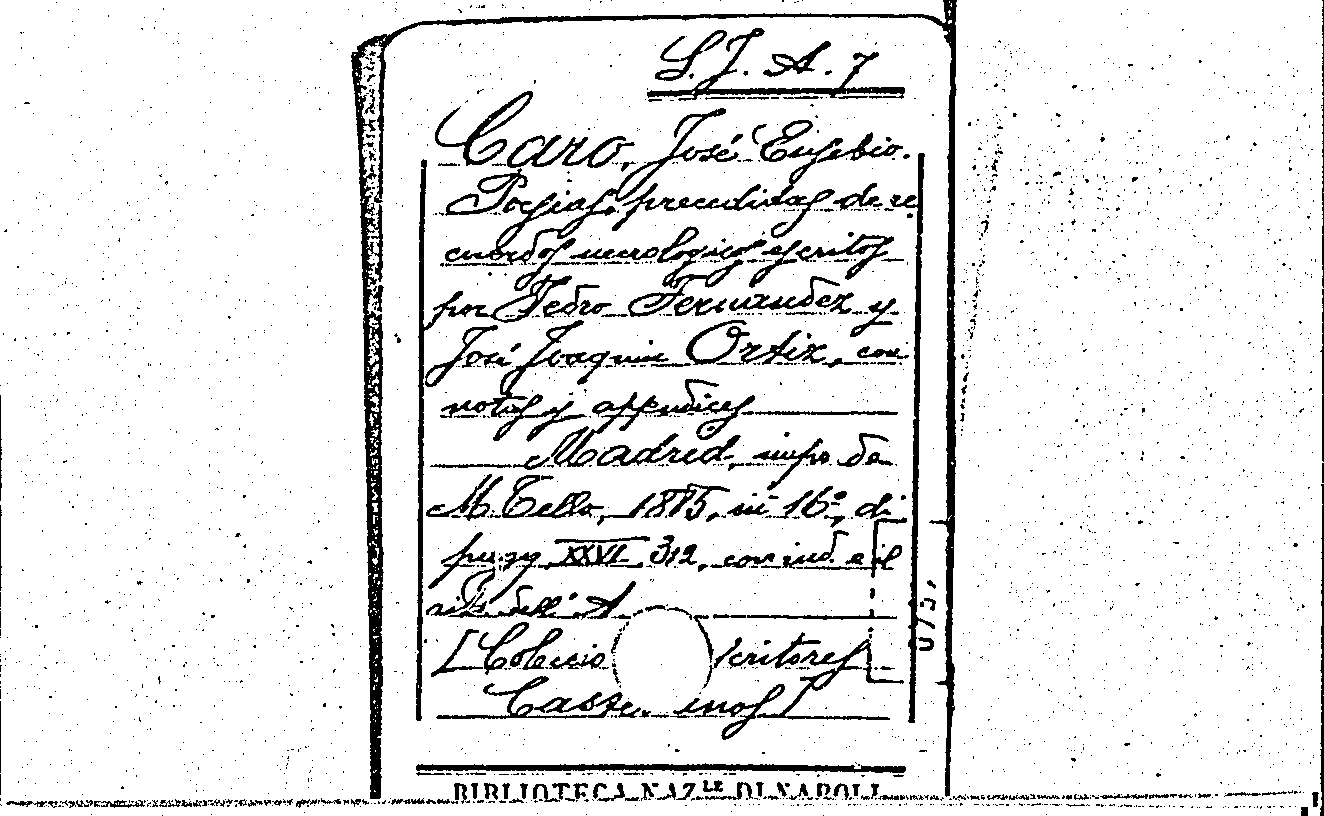 S.J. A. 7
Caro, José Eusebio.
Poesias, precedidas de re
cuerdos necrologicos escritos
por Pedro Fernandez y
José Joaquin Ortiz, con
notas y appendices
Madrid, imp. de
M Tello, 1885, in 16º, di
pagg XXVI 312, con ind. e il
rit. dell' A
[Coleccio scritores
Caste inos]
BIBLIOTECA NAZLE DI NAPOLI